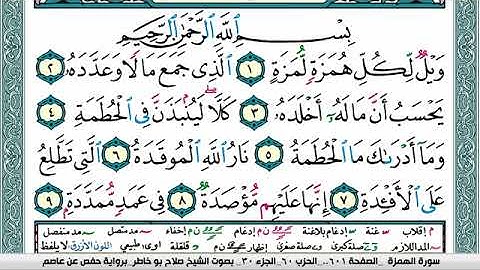 بِسْمِ ٱللَّهِ ٱلرَّحْمَٰنِ ٱلرَّحِيمِ
وَيْلٌ لِّكُلِّ هُمَزَةٍ لُّمَزَةٍ ١ ٱلَّذِى جَمَعَ مَالًا وَعَدَّدَهُۥ ٢
يَحْسَبُ أَنَّ مَالَهُۥٓ أَخْلَدَهُۥ ٣ كَلَّا ۖ لَيُنۢبَذَنَّ فِى ٱلْحُطَمَةِ ٤
وَمَآ أَدْرَىٰكَ مَا ٱلْحُطَمَةُ ٥ نَارُ ٱللَّهِ ٱلْمُوقَدَةُ ٦ ٱلَّتِى تَطَّلِعُ
عَلَى ٱلْأَفْـِٔدَةِ ٧ إِنَّهَا عَلَيْهِم مُّؤْصَدَةٌ ٨ فِى عَمَدٍ مُّمَدَّدَةٍۭ ٩
م إقلاب غنة إدغام بلاغنة ن م إدغام ن م إخفاء مد متصل مد منفصل
المد اللازم صلة كبرى صلة صغرى إظهار ن م قلقلة اوى، طبيعي اللون الأزرق لا يلفظ
سورة الهمزة _الصفحة ٦٠١_ الحزب ٦٠_ الجزء ٣٠_ بصوت الشيخ صلاح بو خاطر_ برواية حفص عن عاصم